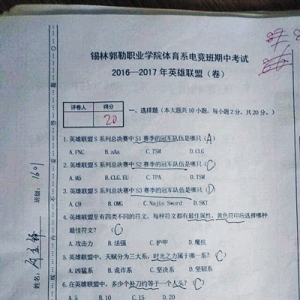 锡林郭勒职业学院体育系电竞班期中考试
2016—2017 年英雄联盟（卷）
评卷人 得分
20
一、选择题（本大题共 10 小题，每小题 2 分，共 20 分。）
1.英雄联盟 S 系列总决赛中 S1 赛季的冠军队伍是哪只（A）
A.FNC B.aAa C.TSM D.CLG
2.英雄联盟 S 系列总决赛中 赛季的冠军队伍是哪只（C）
A.M5 B.CLG.EU C.TPA D.TSM
3.英雄联盟 S 系列总决赛中 赛季的冠军队伍是哪只（D）
A.C9 B.OMG C.Najin Sword D.SKT
4.英雄联盟里有四类不同的符文，每种符文都有最佳属性，黄色符印应选择哪种
最佳符文？（C）
A.攻击力 B.法强 C.护甲 D.魔抗
5.英雄联盟里，天赋分为三大系，时光之力属于哪一系？（C）
A.凶猛系 B.诡诈系 C.坚决系 D.坚韧系
6.在英雄联盟中，多少个 等于一个人头？（C）
A.5 B.10 C.15 D.20
班级：1601
姓名：